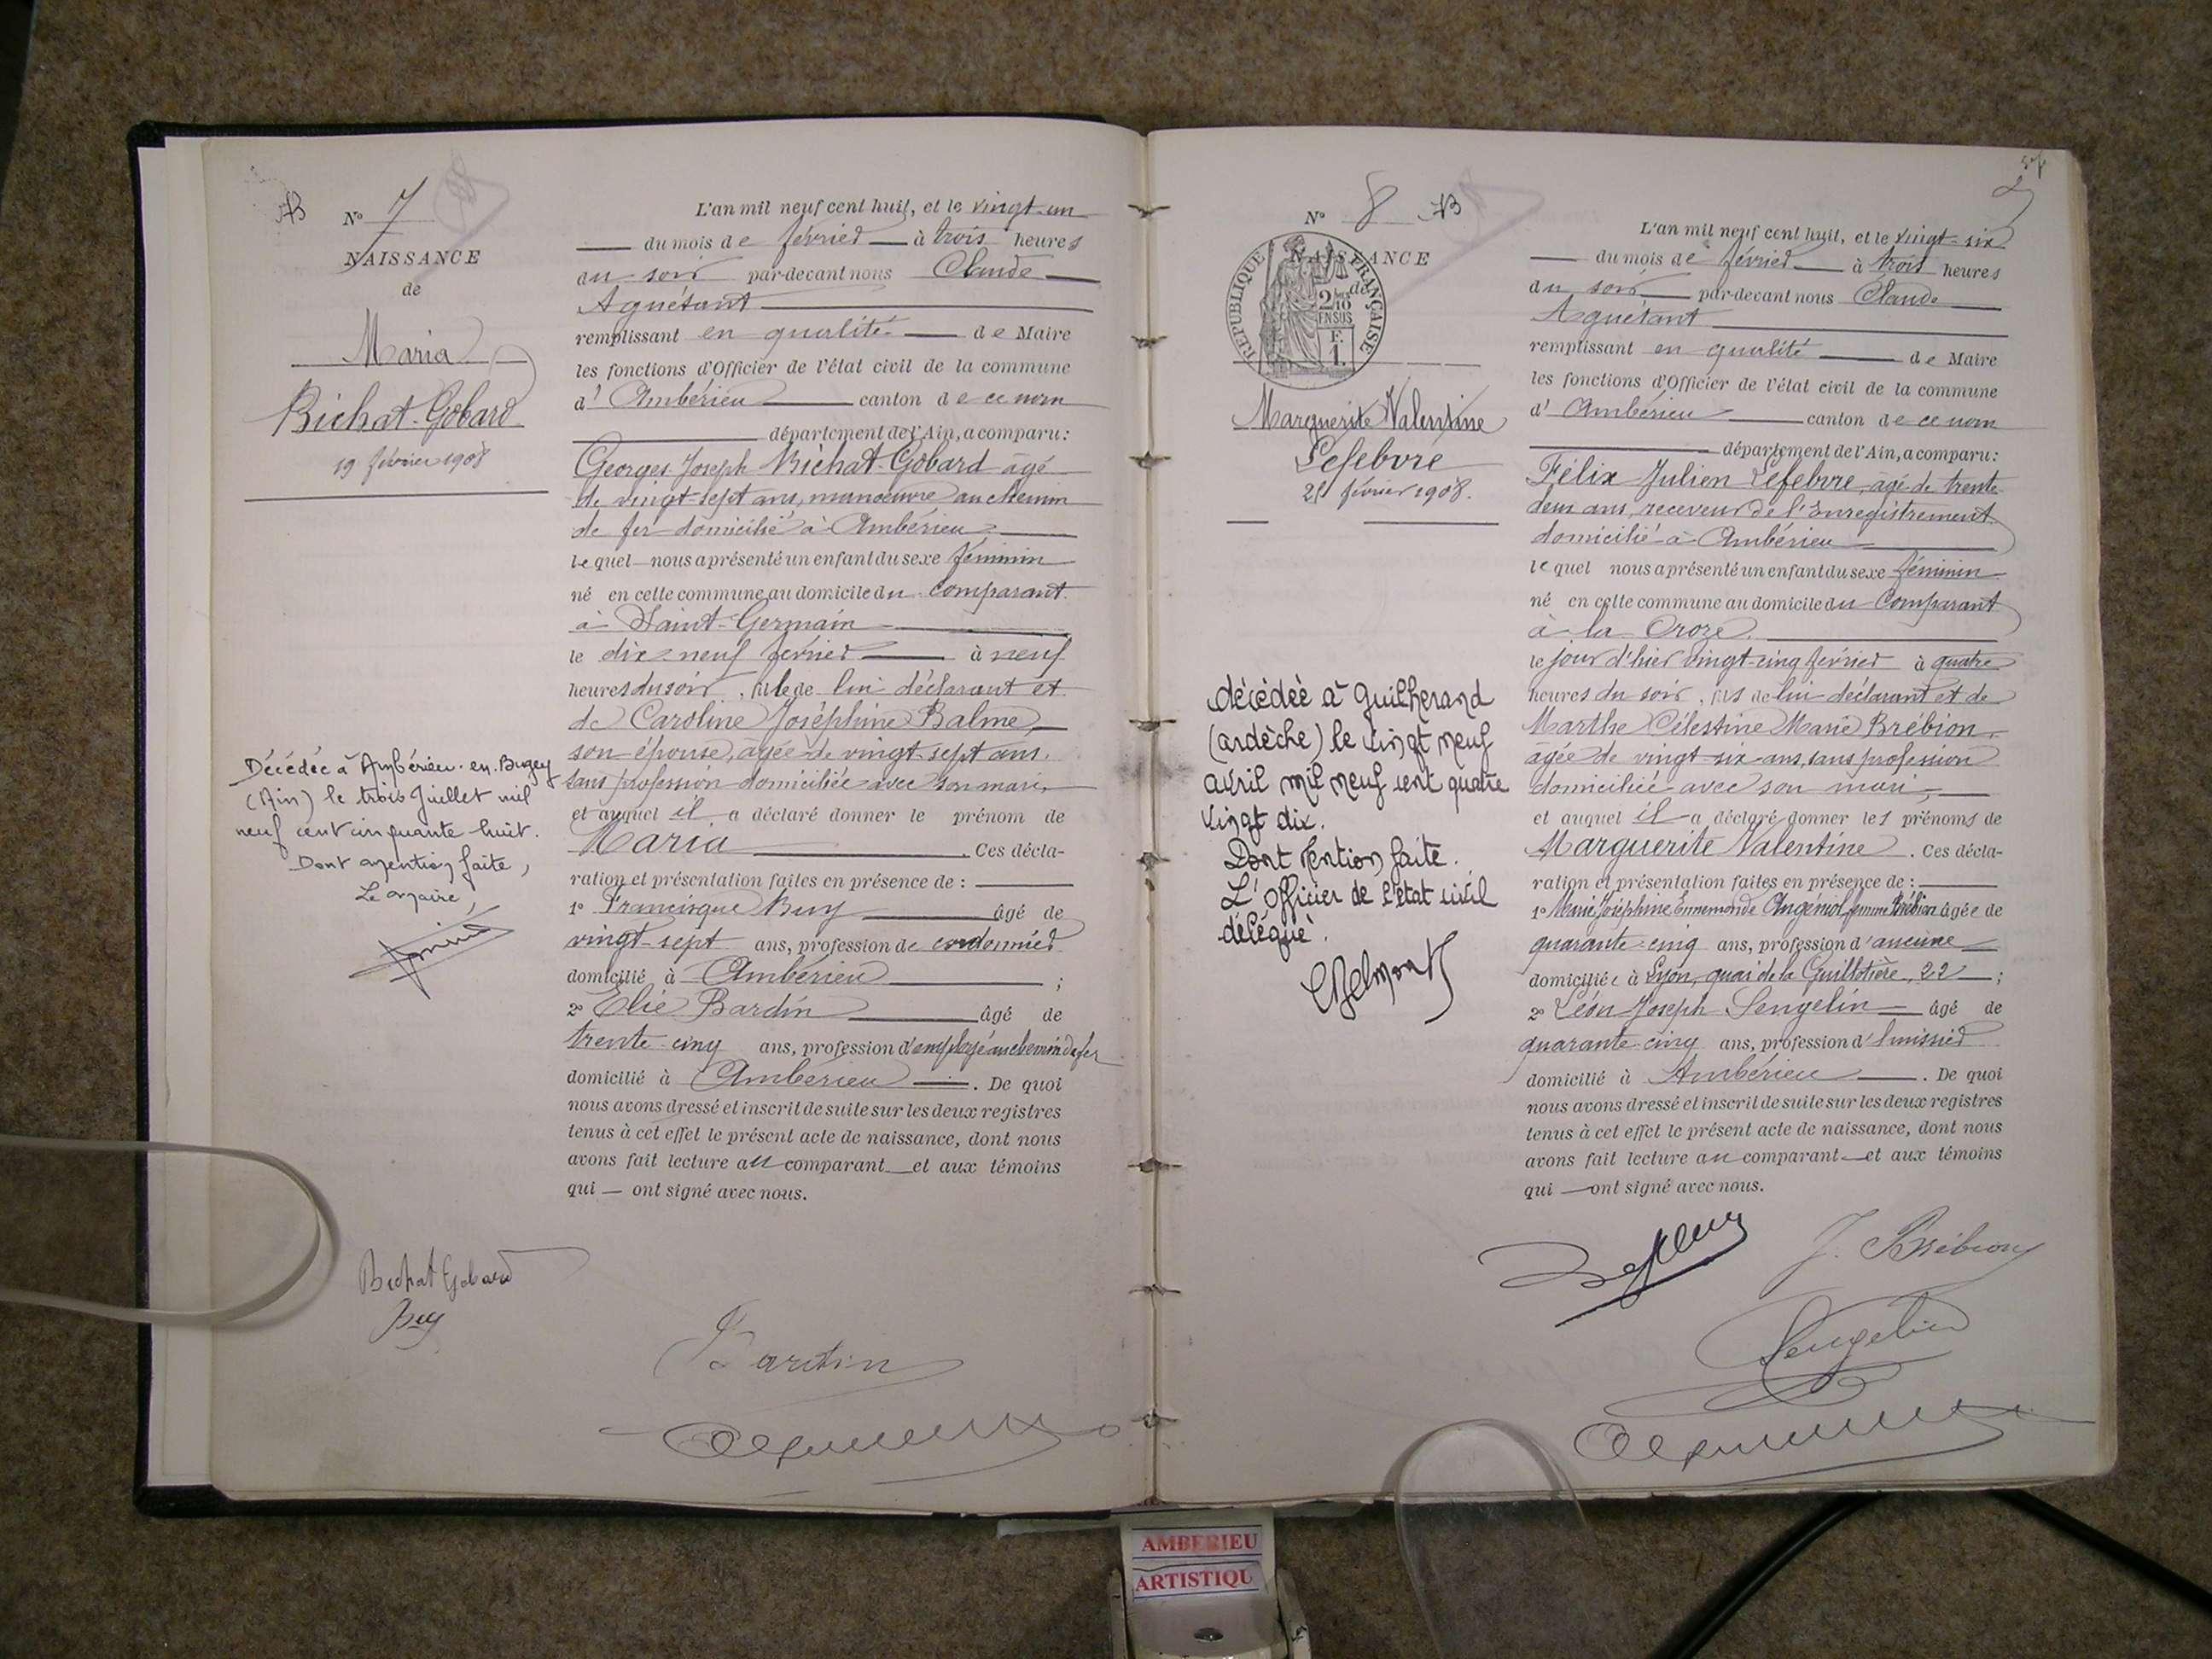 AB Nº 7
NAISSANCE
de
Maria
Bichat-Gobard
19 février 1908
Décédée à Ambérieu-en-Bugey
(Ain) le trois Juillet mil
neuf cent cinquante huit.
Dont mention faite,
Le maire,
L'an mil neuf cent huit, et le vingt-un
du mois de février à trois heures
du soir par-devant nous Claude
Aguétant
remplissant en qualité de Maire
les fonctions d'Officier de l'état civil de la commune
d'Ambérieu canton de ce nom
département de l'Ain, a comparu:
Georges Joseph Bichat-Gobard âgé
de vingt-sept ans, manœuvre au chemin
de fer domicilié à Ambérieu
lequel nous a présenté un enfant du sexe féminin
né en cette commune au domicile du comparant
à Saint-Germain
le dix-neuf février à neuf
heures du soir, fille de lui déclarant et
de Caroline Joséphine Balme,
son épouse, âgée de vingt-sept ans,
sans profession domiciliée avec son mari,
et auquel il a déclaré donner le prénom de
Maria. Ces décla-
ration et présentation faites en présence de :
1º Francisque Buy âgé de
vingt-sept ans, profession de cordonnier
domicilié à Ambérieu ;
2º Elie Bardin âgé de
trente-cinq ans, profession d'employé au chemin de fer
domicilié à Ambérieu. De quoi
nous avons dressé et inscrit de suite sur les deux registres
tenus à cet effet le présent acte de naissance, dont nous
avons fait lecture au comparant et aux témoins
qui ont signé avec nous.
Bichat Gobard
Buy
Bardin
Nº 8 AB
NAISSANCE
de
REPUBLIQUE FRANÇAISE
2/10
EN SUS
F.
1.
Marguerite Valentine
Lefebvre
25 février 1908.
décédée à Guilherand
(ardèche) le vingt neuf
avril mil neuf cent quatre
vingt dix.
Dont mention faite.
L'Officier de l'état civil
délégué.
L'an mil neuf cent huit, et le vingt-six
du mois de février à trois heures
du soir par-devant nous Claude
Aguétant
remplissant en qualité de Maire
les fonctions d'Officier de l'état civil de la commune
d'Ambérieu canton de ce nom
département de l'Ain, a comparu:
Félix Julien Lefebvre, âgé de trente
deux ans, receveur de l'Enregistrement
domicilié à Ambérieu
lequel nous a présenté un enfant du sexe féminin
né en cette commune au domicile du Comparant
à la Croze
le jour d'hier vingt-cinq février à quatre
heures du soir, fils de lui déclarant et de
Marthe Célestine Marie Brébion,
âgée de vingt-six ans, sans profession
domiciliée avec son mari,
et auquel il a déclaré donner les prénoms de
Marguerite Valentine. Ces décla-
ration et présentation faites en présence de :
1º Marie Joséphine Ennemonde Angéniol femme Brébion âgée de
quarante-cinq ans, profession d'aucune
domiciliée à Lyon, quai de la Guillotière, 22 ;
2º Léon Joseph Sengelin âgé de
quarante-cinq ans, profession d'huissier
domicilié à Ambérieu. De quoi
nous avons dressé et inscrit de suite sur les deux registres
tenus à cet effet le présent acte de naissance, dont nous
avons fait lecture au comparant et aux témoins
qui ont signé avec nous.
J. Brébion
Sengelin
AMBERIEU
ARTISTIQU